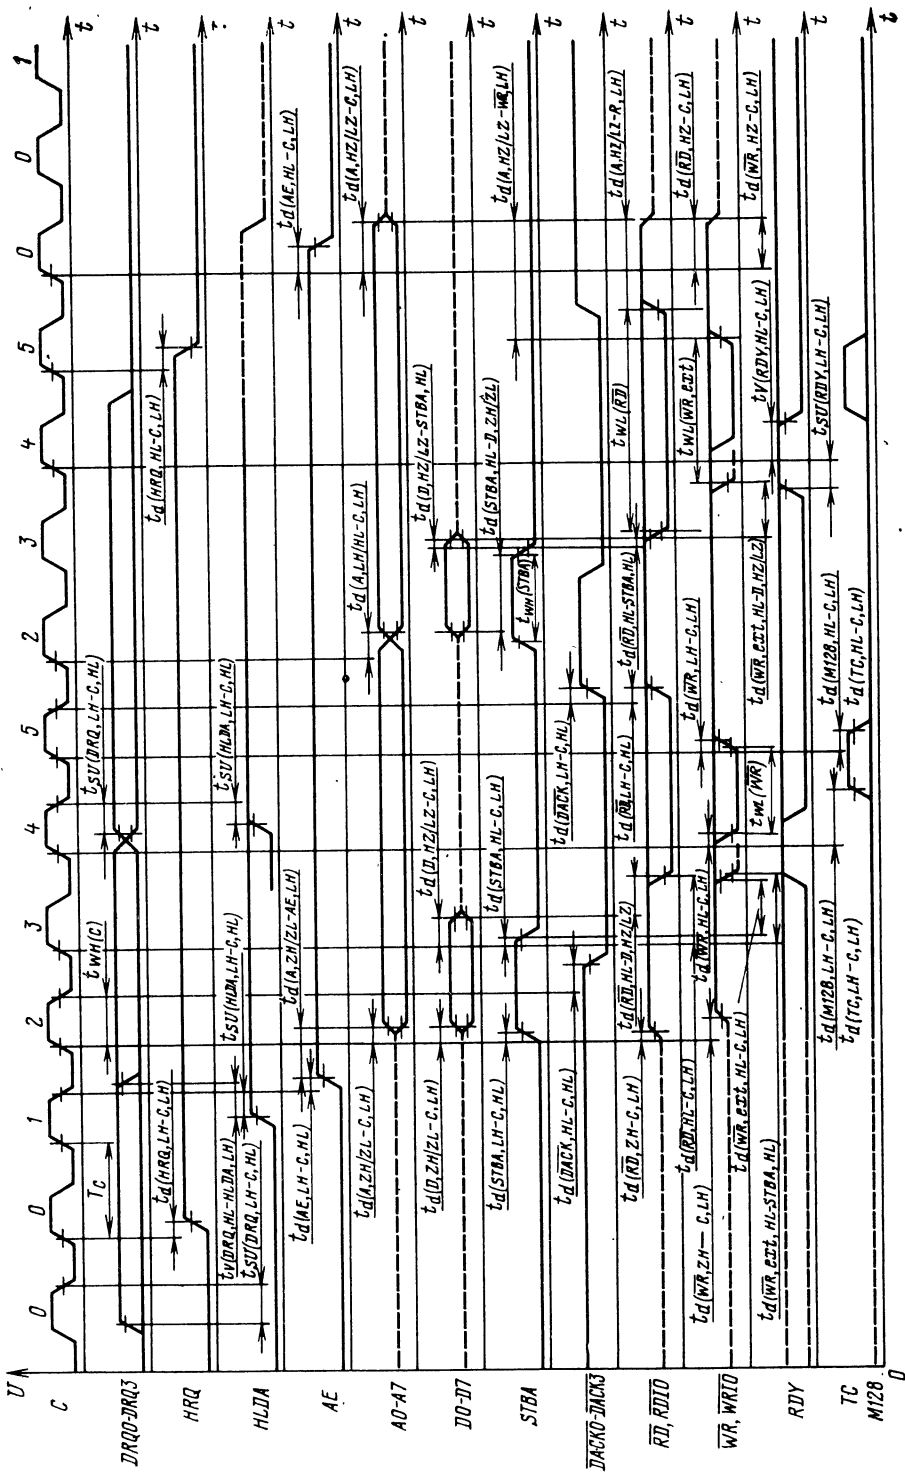 U
C
DRQ0-DRQ3
HRQ
HLDA
AE
A0-A7
D0-D7
STBA
DACK0-DACK3
RD, RDIO
WR, WRIO
RDY
TC
M128
0
0 0 1 2 3 4 5 2 3 4 5 0 0 1
t
t
t
t
t
t
t
t
t
t
t
t
TC
tWH(C)
tSU(DRQ,LH-C,HL)
td(HRQ,LH-C,LH)
td(HRQ,HL-C,LH)
tV(DRQ,HL-HLDA,LH)
tSU(DRQ,LH-C,HL)
tSU(HLDA,LH-C,HL)
tSU(HLDA,LH-C,HL)
td(AE,LH-C,HL)
td(A,ZH/ZL-AE,LH)
td(AE,HL-C,LH)
td(A,ZH/ZL-C,LH)
td(A,LH/HL-C,LH)
td(A,HZ/LZ-C,LH)
td(D,ZH/ZL-C,LH)
td(D,HZ/LZ-C,LH)
td(D,HZ/LZ-STBA,HL)
td(STBA,LH-C,HL)
td(STBA,HL-C,LH)
tWH(STBA)
td(STBA,HL-D,ZH/ZL)
td(A,HZ/LZ-WR,LH)
td(DACK,HL-C,HL)
td(DACK,LH-C,HL)
td(RD,ZH-C,LH)
td(RD,HL-D,HZ/LZ)
td(RD,LH-C,HL)
td(RD,HL-STBA,HL)
tWL(RD)
td(A,HZ/LZ-R,LH)
td(RD,HL-C,LH)
td(RD,HZ-C,LH)
td(WR,ZH-C,LH)
td(WR,HL-C,LH)
td(WR,LH-C,LH)
tWL(WR,ext)
td(WR,HZ-C,LH)
td(WR,ext,HL-C,LH)
tWL(WR)
td(WR,ext,HL-D,HZ/LZ)
tV(RDY,HL-C,LH)
td(WR,ext,HL-STBA,HL)
tSU(RDY,LH-C,LH)
td(M128,LH-C,LH)
td(TC,LH-C,LH)
td(M128,HL-C,LH)
td(TC,HL-C,LH)